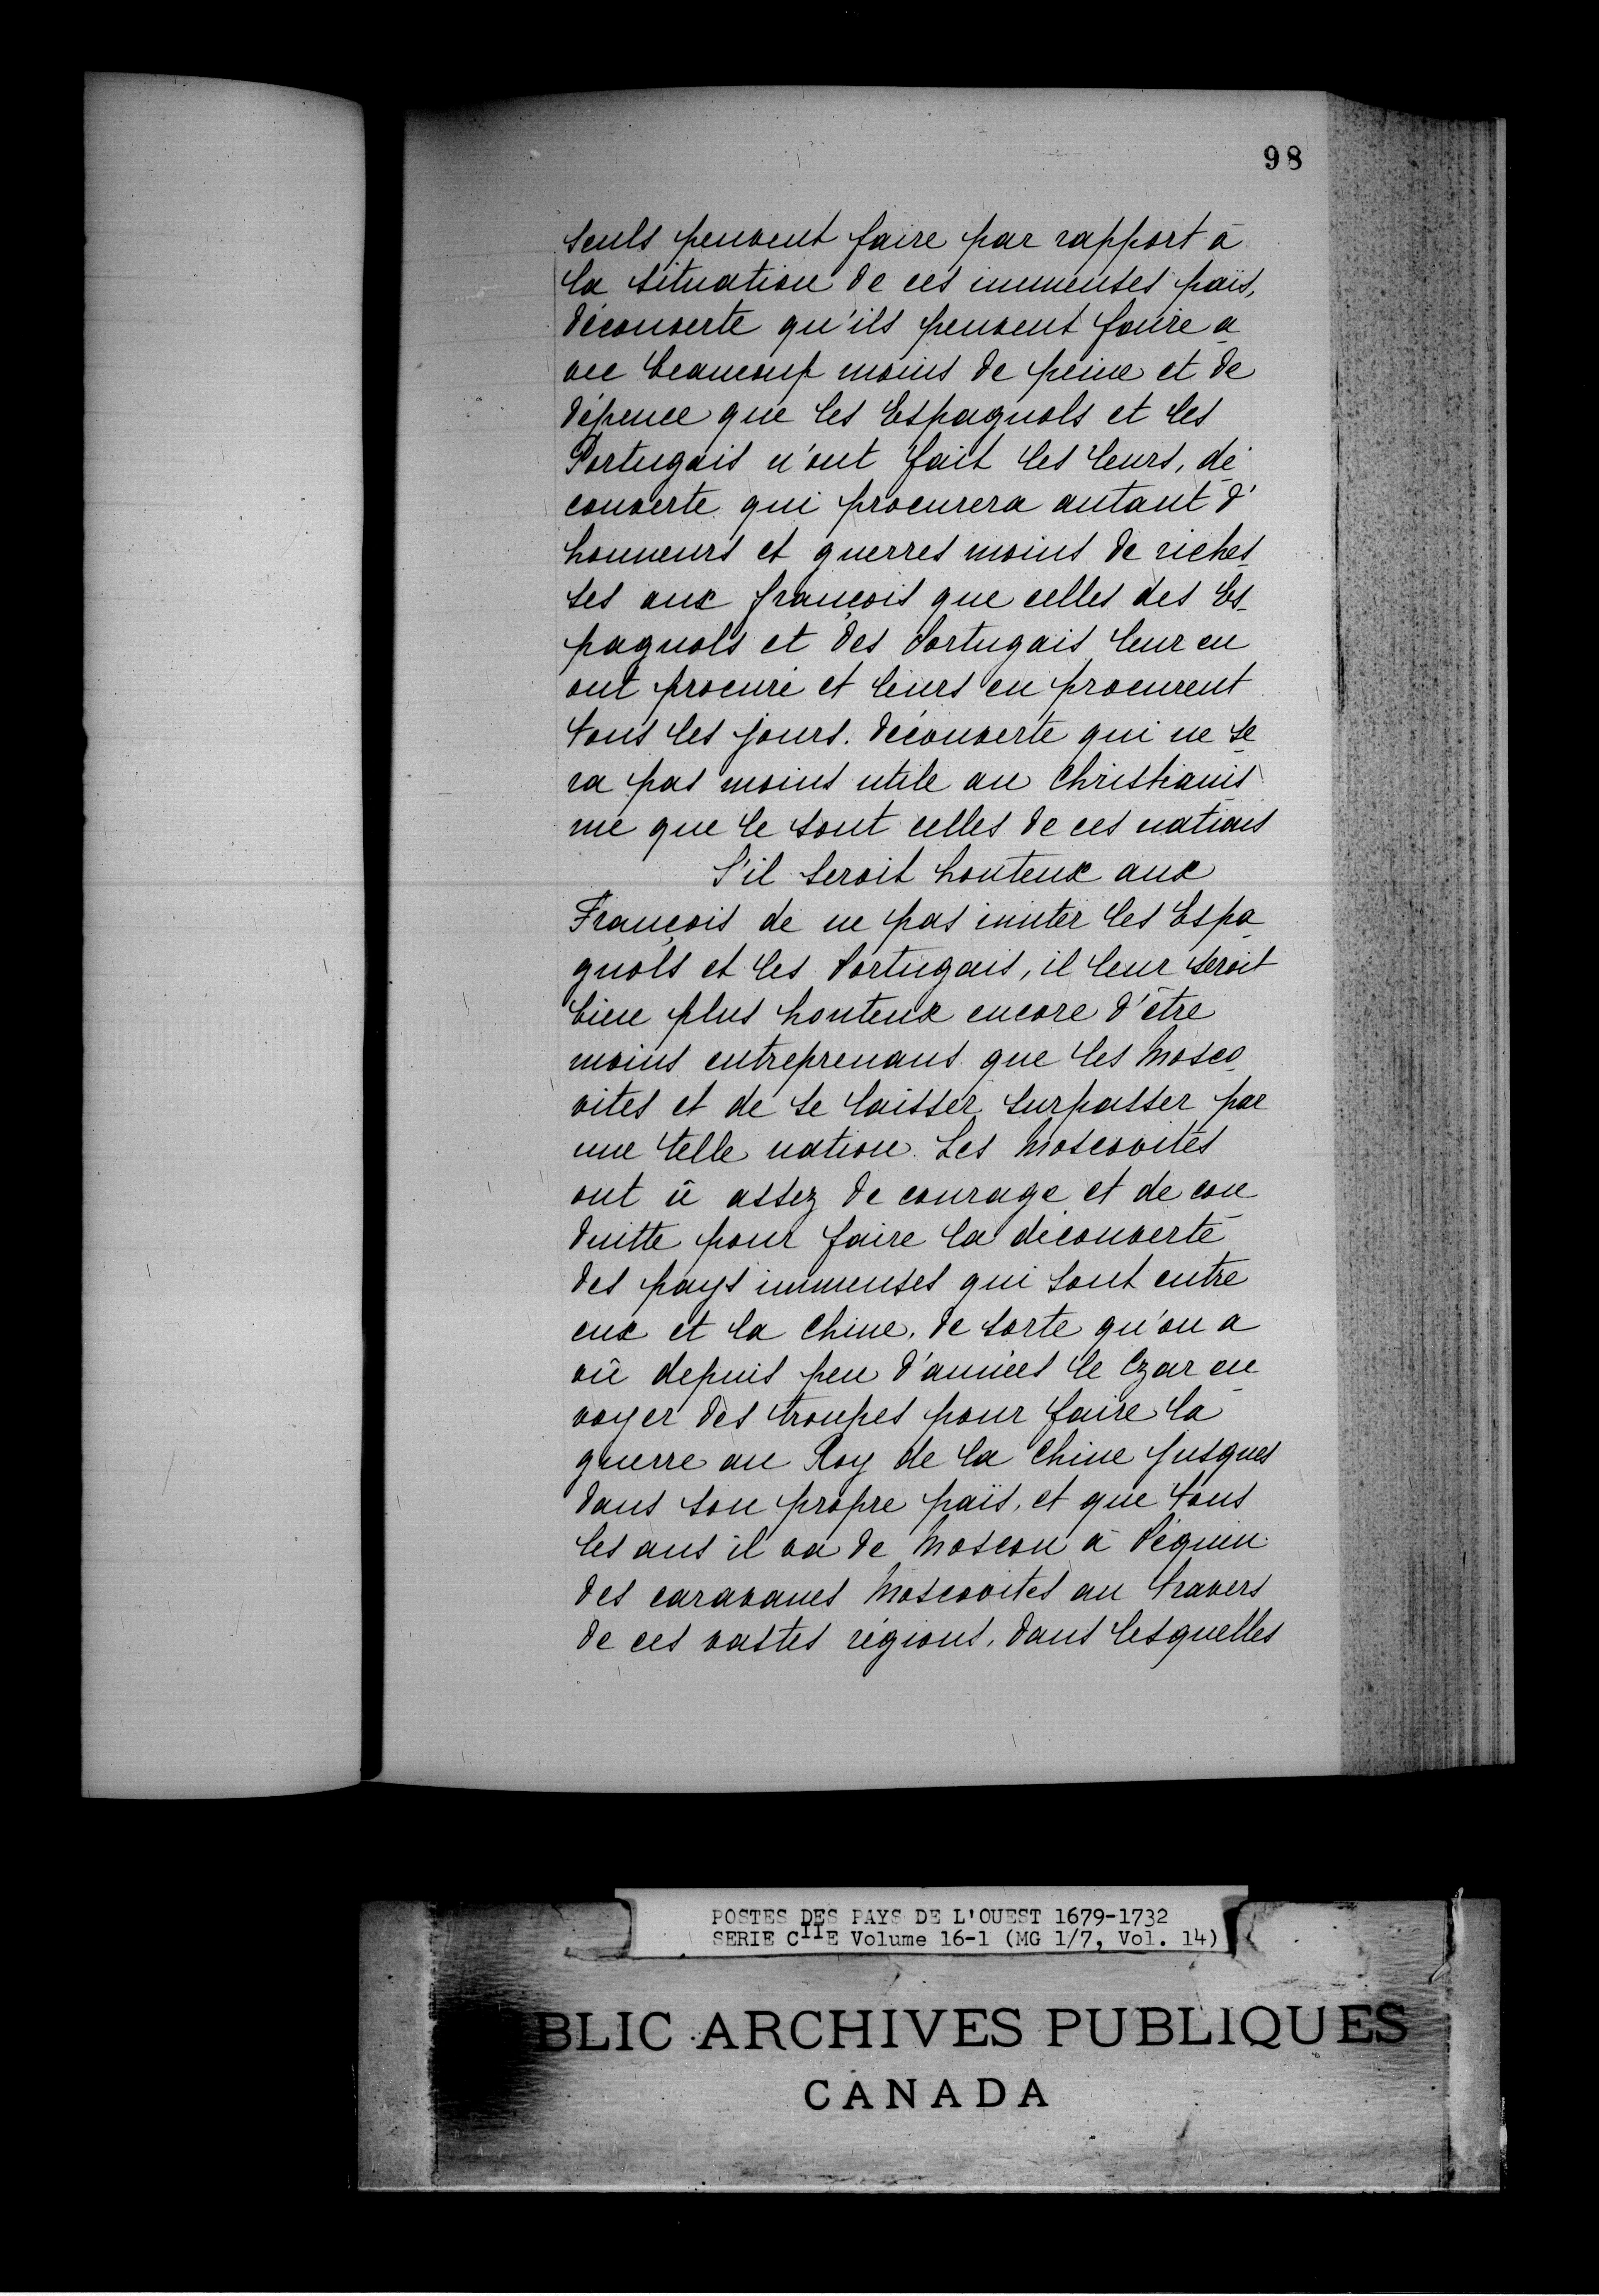 98
seuls peuvent faire par rapport à
la situation de ces immenses païs,
découverte qu'ils peuvent faire a
vec beaucoup moins de peine et de
dépence que les Espagnols et les
Portugais n'ont fait les leurs, dé
couverte qui procurera autant d'
honneurs et guerres moins de riches
ses aux françois que celles des Es
pagnols et des Portugais leur en
ont procuré et leurs en procurent
tous les jours. découverte qui ne se
ra pas moins utile au Christianis
me que le sont celles de ces nations
S'il seroit honteux aux
François de ne pas imiter les Espa
gnols et les Portugais, il leur seroit
bien plus honteux encore d'être
moins entreprenans que les Mosco
vites et de se laisser surpasser par
une telle nation. Les Moscovites
ont û assez de courage et de con
duitte pour faire la découverte
des pays immenses qui sont entre
eux et la Chine, de sorte qu'on a
vû depuis peu d'années le Czar en
voyer des troupes pour faire la
guerre au Roy de la Chine jusques
dans son propre païs, et que tous
les ans il va de Moscou à Péquin
des caravanes Moscovites au travers
de ces vastes régions, dans lesquelles
POSTES DES PAYS DE L'OUEST 1679-1732
SERIE CIIE Volume 16-1 (MG 1/7, Vol. 14)
BLIC ARCHIVES PUBLIQUES
CANADA